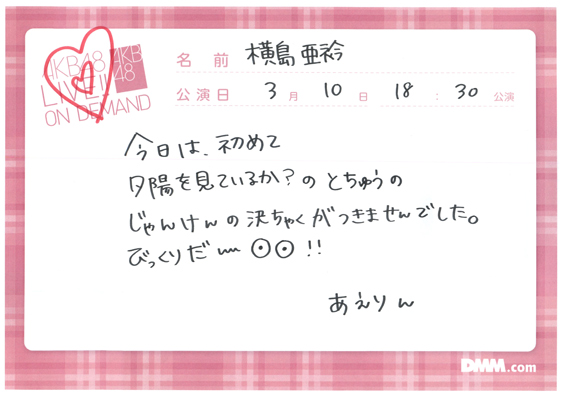 AKB48
LIVE!!
ON DEMAND
AKB
48
名前 横島亜衿
公演日 3月10日 18:30公演
今日は、初めて
夕陽を見ているか?のとちゅうの
じゃんけんの決ちゃくがつきませんでした。
びっくりだー ⊙⊙!!
あえりん
DMM.com